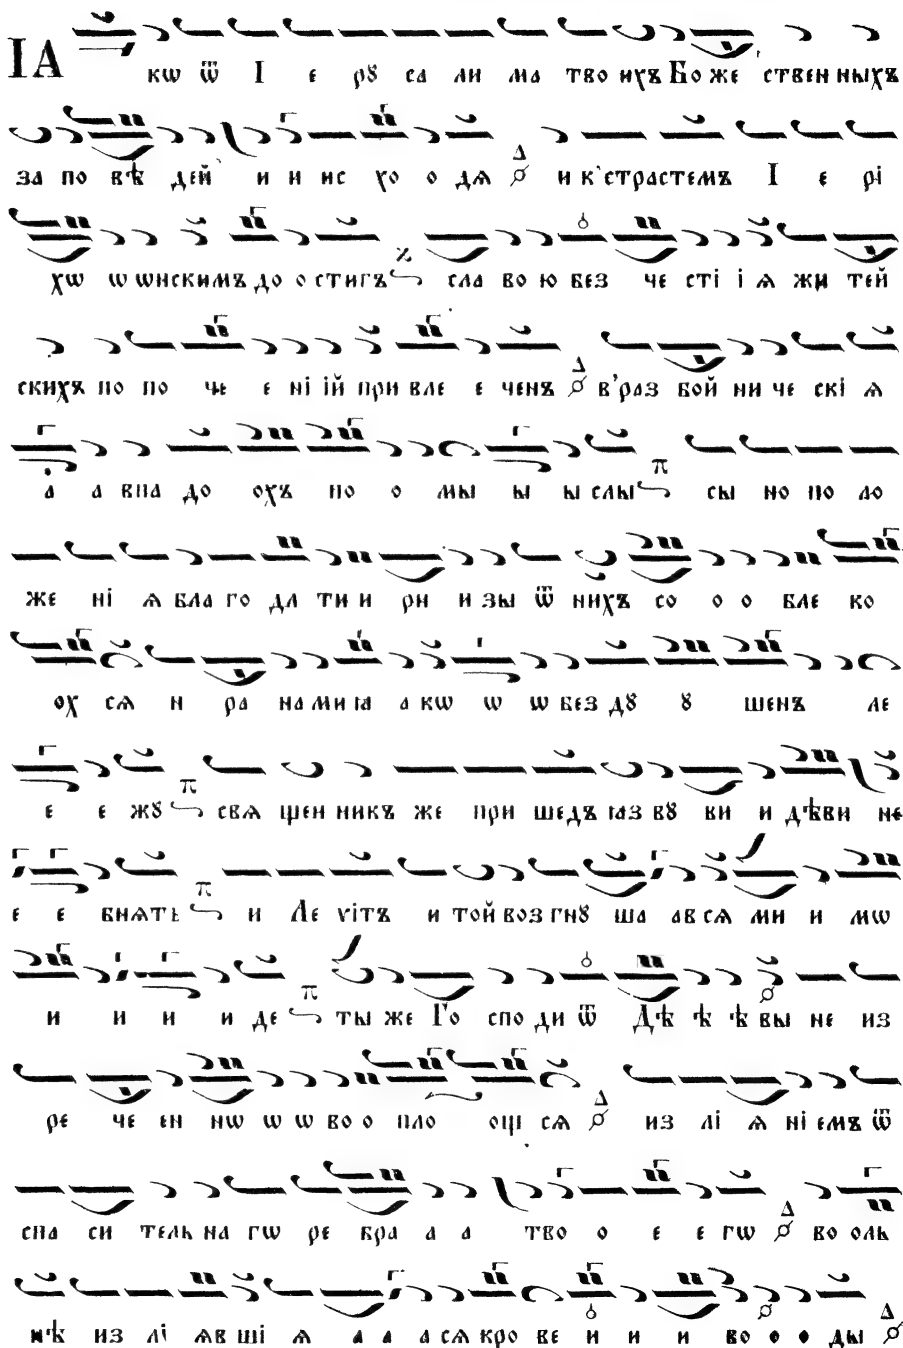 ІА кѡ ѿ І е рꙋ са ли ма тво ихъ Бо же ственныхъ
за по вѣ дей и и ис хо о дѧ и к'страстемъ І е рі
хѡ ѡ ѡнскимъ до о стигъ сла во ю без че сті і ѧ жи тей
скихъ по по че е ні ій при вле е ченъ в'раз бой ни че скі ѧ
а а впа до охъ по о мы ы ы слы сы но по ло
же ні ѧ бла го да ти и ри и зы ѿ нихъ со о о бле ко
ох сѧ и ра на ми ꙗ а кѡ ѡ ѡ без дꙋ ꙋ шенъ ле
е е жꙋ свѧ щен никъ же при шедъ ꙗз вꙋ ви и дѣви не
е е внѧть и Ле ѵітъ и той воз гнꙋ ша ав сѧ ми и мѡ
и и и и де ты же Го спо ди ѿ Дѣ ѣ ѣ вы не из
ре че ен нѡ ѡ ѡ во о пло ощ сѧ из лі ѧ ні емъ ѿ
спа си тель на гѡ ре бра а а тво о е е гѡ во оль
нѣ из лі ѧв ші ѧ а а а сѧ кро ве и и и во о о ды